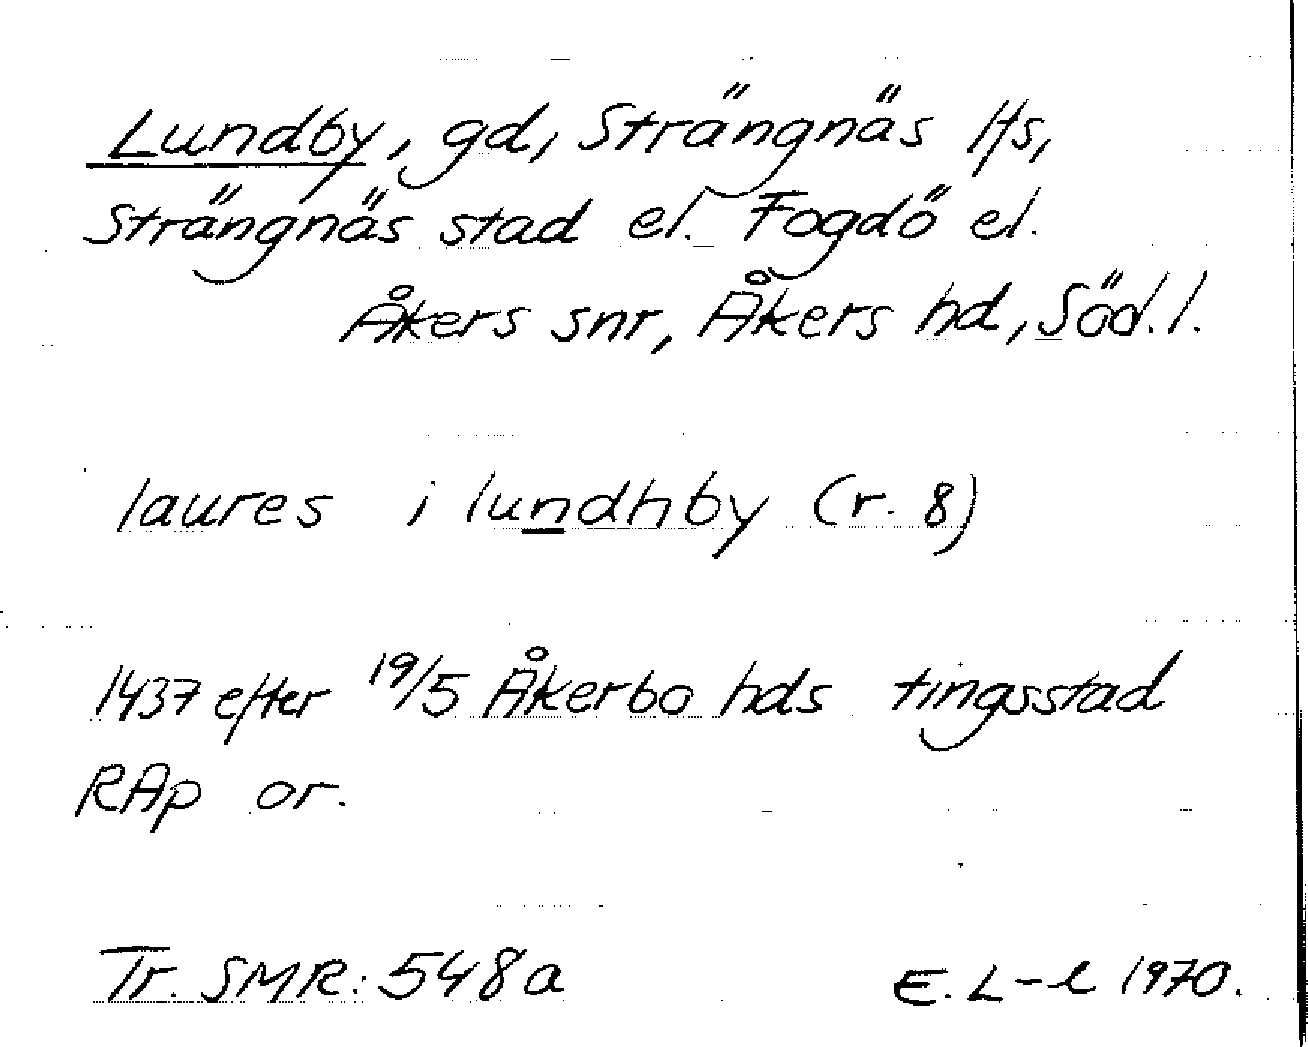 Lundby, gd, Strängnäs lfs,
Strängnäs stad el. Fogdö el.
Åkers snr, Åkers hd, Söd.l.
laures i lundhby (r. 8)
1437 efter 19/5 Åkerbo hds tingsstad
RAp or.
Tr. SMR: 548a E. L-l 1970.